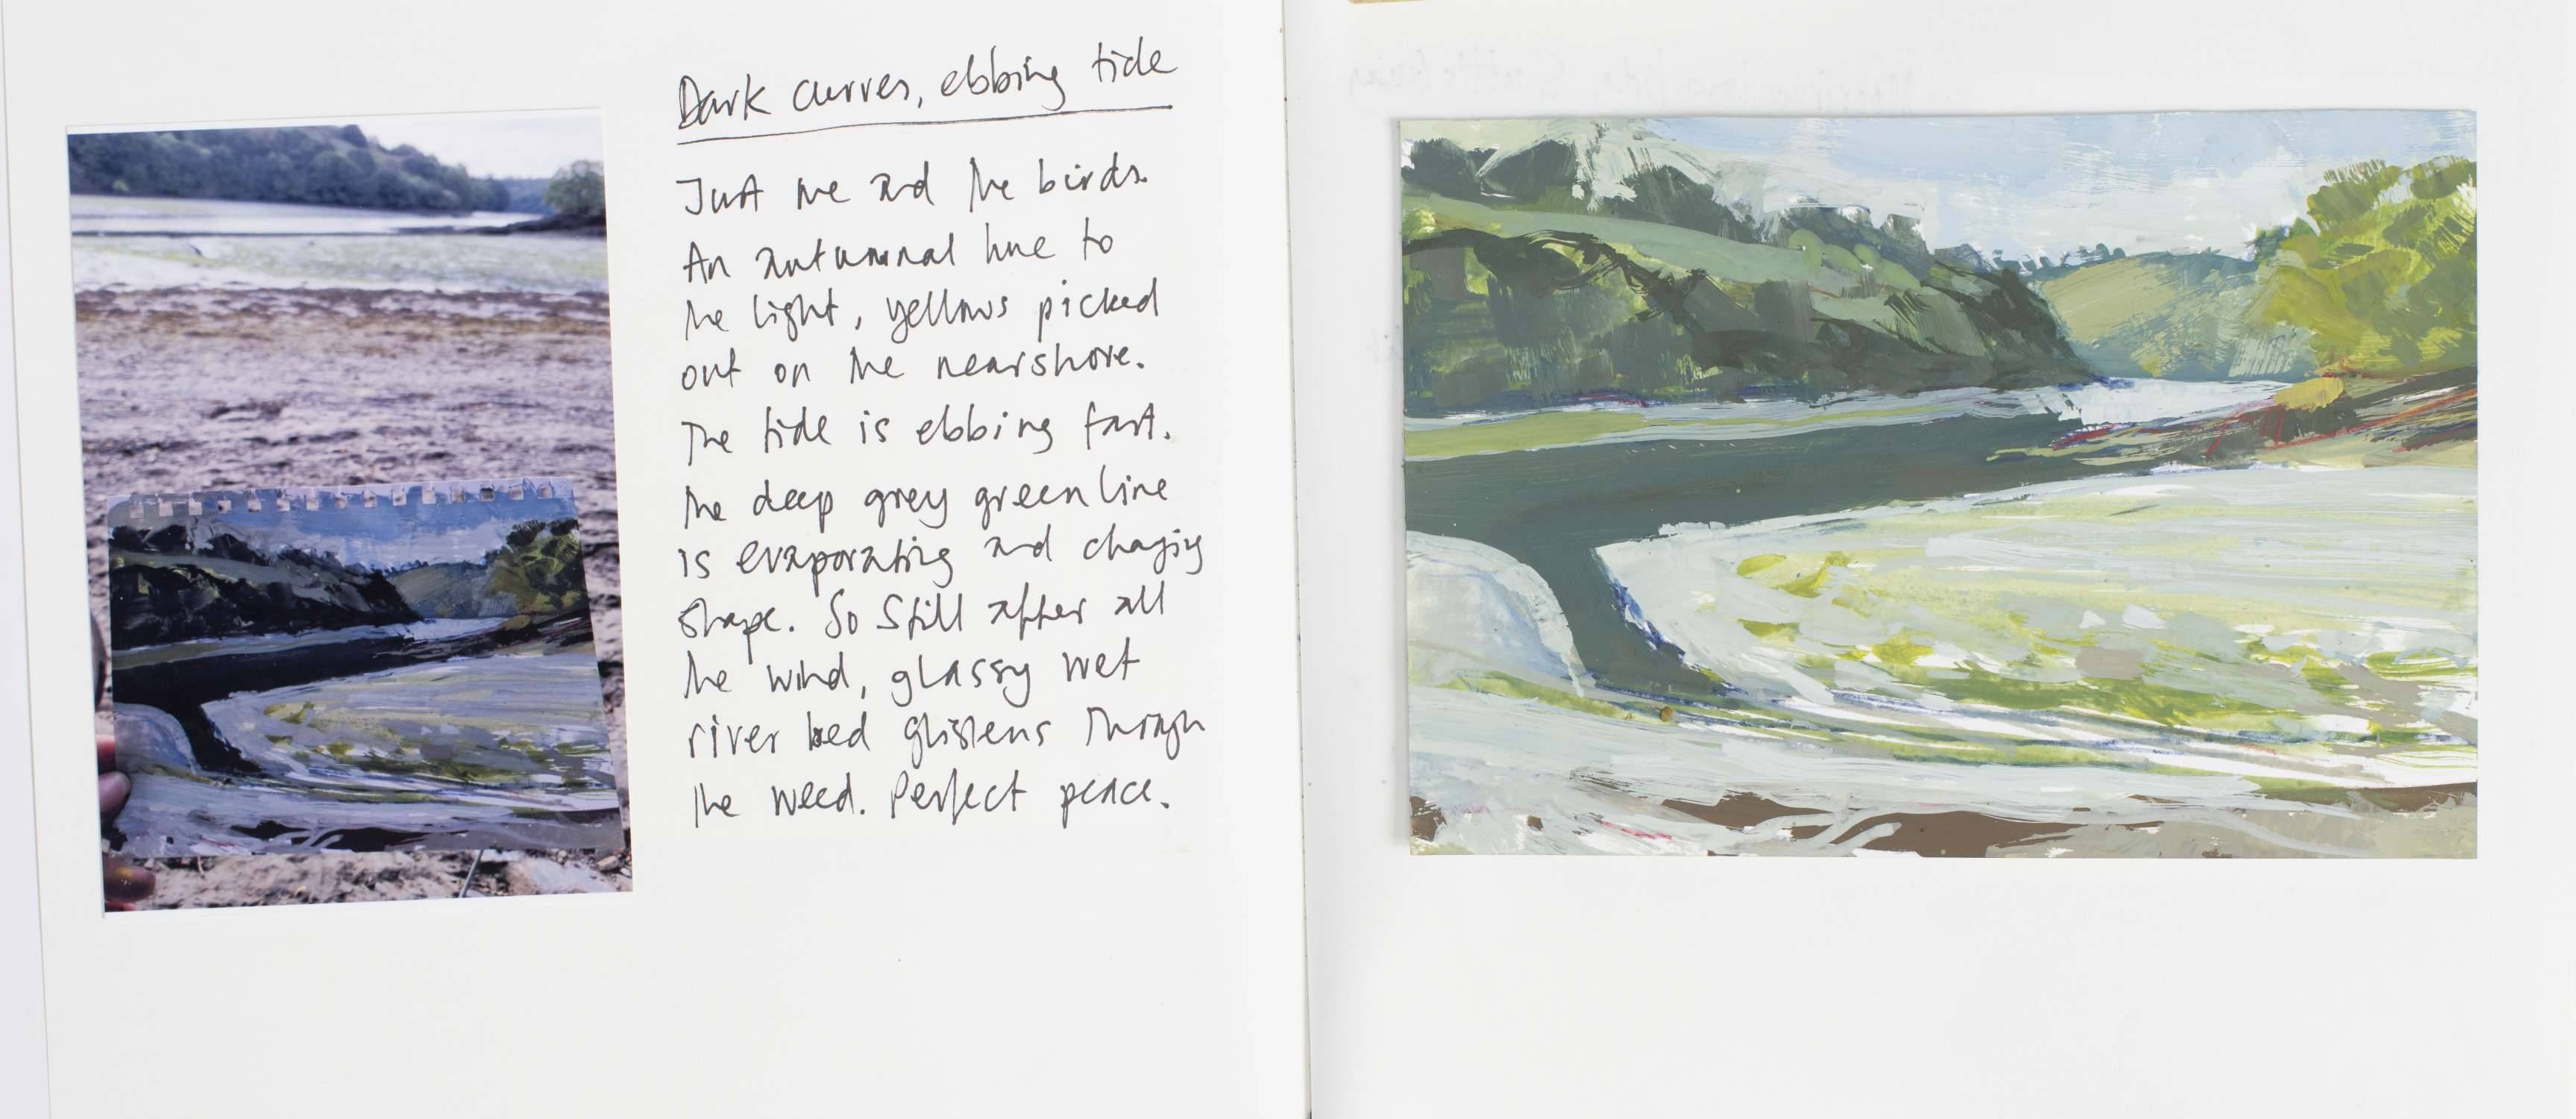 Dark curves, ebbing tide
Just me and the birds.
An autumnal hue to
the light, yellows picked
out on the near shore.
The tide is ebbing fast.
The deep grey green line
is evaporating and changing
shape. So still after all
the wind, glassy wet
river bed glistens through
the weed. Perfect peace.